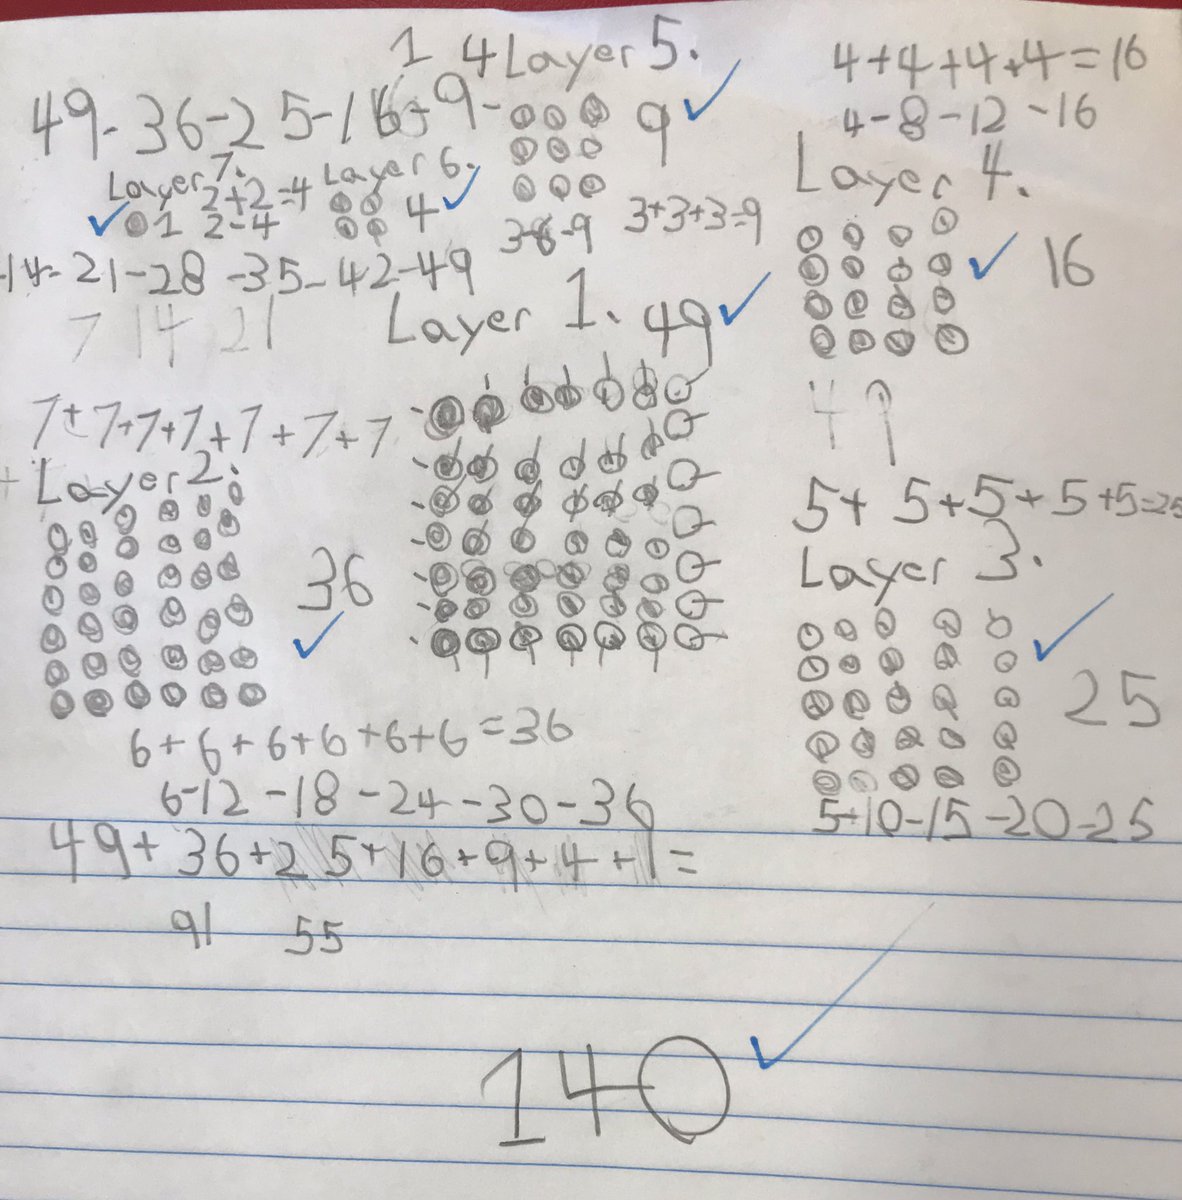 1 4 Layer 5.
49-36-25-16-9-
9
Layer 7.
2+2=4
1 2-4
Layer 6.
4
3-6-9
3+3+3=9
4+4+4+4=16
4-8-12-16
Layer 4.
16
-14-21-28-35-42-49
7 14 21
Layer 1. 49
7+7+7+7+7+7+7
+ Layer 2.
36
6+6+6+6+6+6=36
6-12-18-24-30-36
49
5+5+5+5+5=25
Layer 3.
25
5+10-15-20-25
49+36+25+16+9+4+1=
91 55
140